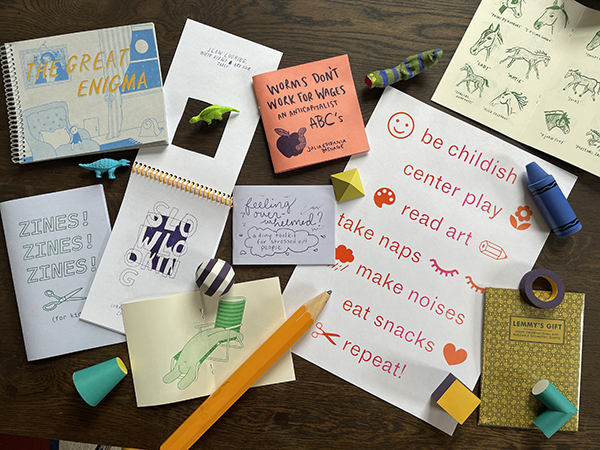 THE GREAT
ENIGMA
WORMS DON'T
WORK FOR WAGES
AN ANTICAPITALIST
ABC's
ZINES!
ZINES!
ZINES!
(for ki
SLO
W LO
ADIN
G
feeling
over-
whelmed?
a tiny toolkit
for stressed out
people
be childish
center play
read art
take naps
make noises
eat snacks
repeat!
LEMMY'S GIFT